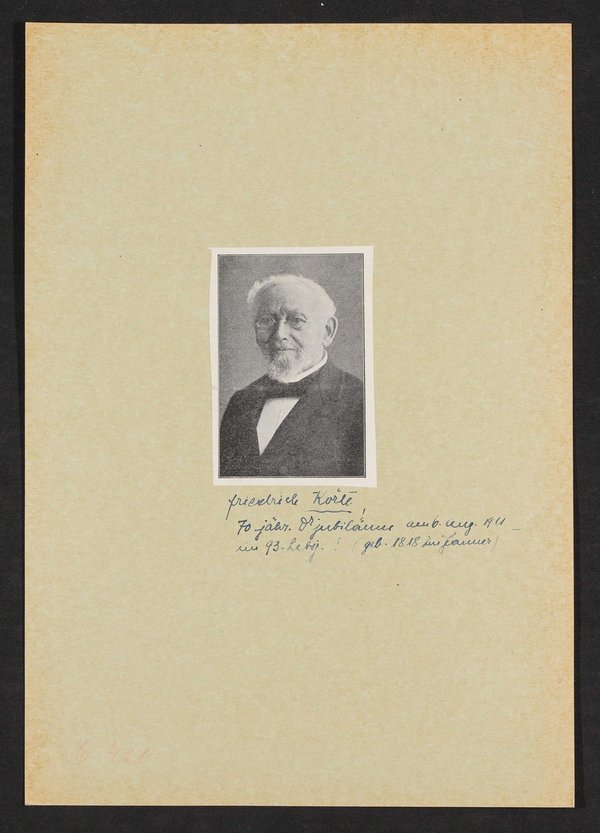 Friedrich Körte!
70-jähr. Dr jubiläum am 6. Aug. 1911 –
im 93. Lebsj.! (geb. 1818 im Januar)